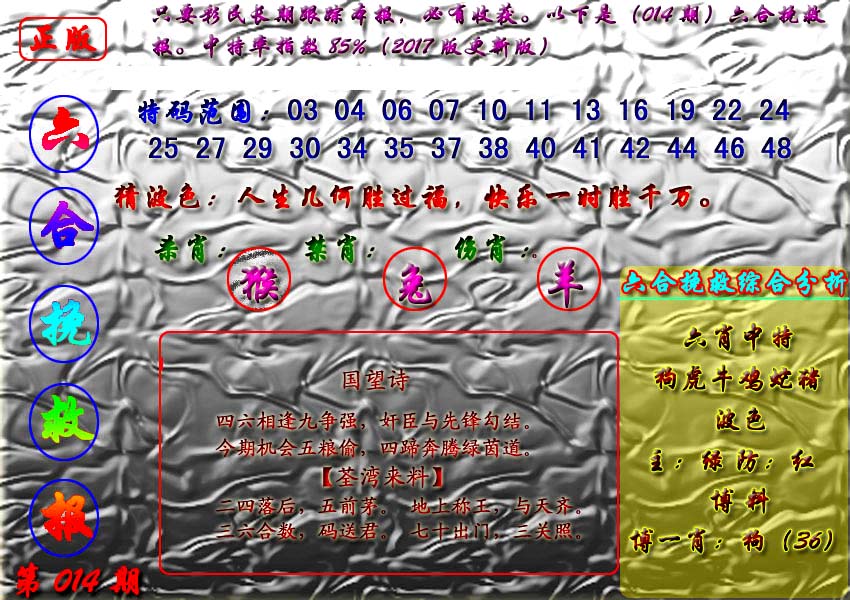 正版
只要彩民长期跟踪本报，必有收获。以下是（014期）六合挽救
报。中特率指数85%（2017版更新版）
六合挽救报
第014期
特码范围：03 04 06 07 10 11 13 16 19 22 24
25 27 29 30 34 35 37 38 40 41 42 44 46 48
猜波色：人生几何胜过福，快乐一时胜千万。
杀肖：猴 禁肖：兔 伤肖：羊
国望诗
四六相逢九争强，奸臣与先锋勾结。
今期机会五粮偷，四蹄奔腾绿茵道。
【荃湾来料】
二四落后，五前茅。 地上称王，与天齐。
三六合数，码送君。 七十出门，三关照。
六合挽救综合分析
六肖中特
狗虎牛鸡蛇猪
波色
主：绿防：红
博料
博一肖：狗（36）